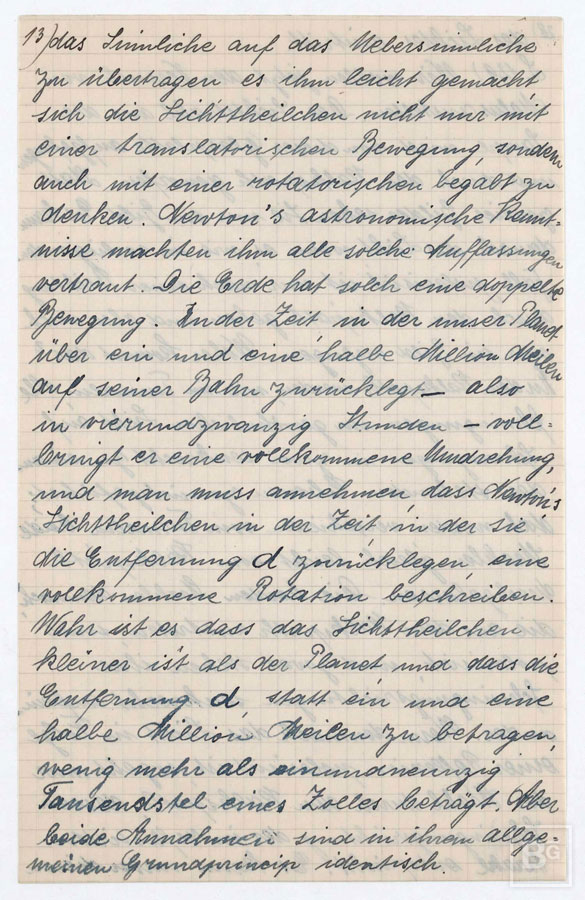 13) das Sinnliche auf das Uebersinnliche
zu übertragen es ihm leicht gemacht,
sich die Lichttheilchen nicht nur mit
einer translatorischen Bewegung, sondern
auch mit einer rotatorischen begabt zu
denken. Newton's astronomische Kennt-
nisse machten ihm alle solche Auffassungen
vertraut. Die Erde hat solch eine doppelte
Bewegung. In der Zeit, in der unser Planet
über ein und eine halbe Million Meilen
auf seiner Bahn zurücklegt – also
in vierundzwanzig Stunden – voll-
bringt er eine vollkommene Umdrehung,
und man muss annehmen, dass Newton's
Lichttheilchen in der Zeit, in der sie
die Entfernung d zurücklegen, eine
vollkommene Rotation beschreiben.
Wahr ist es dass das Lichttheilchen
kleiner ist als der Planet und dass die
Entfernung d, statt ein und eine
halbe Million Meilen zu betragen,
wenig mehr als einundneunzig
Tausendstel eines Zolles beträgt. Aber
beide Annahmen sind in ihrem allge-
meinen Grundprincip identisch.
BG